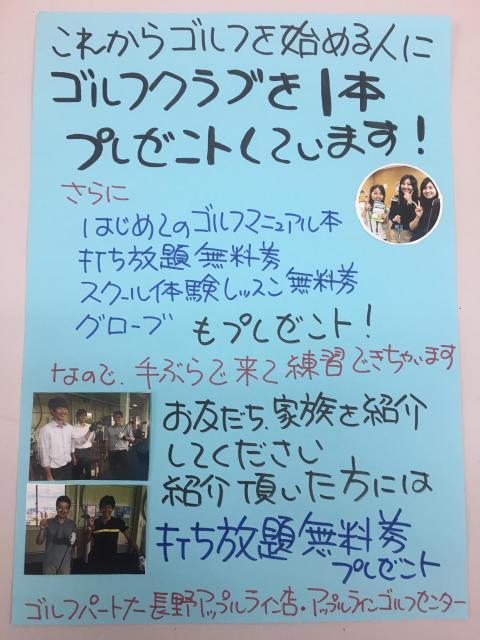 これからゴルフを始める人に
ゴルフクラブを1本
プレゼントしています!
さらに
はじめてのゴルフマニュアル本
打ち放題無料券
スクール体験レッスン無料券
グローブ もプレゼント!
なので、手ぶらで来て練習できちゃいます
お友だち、家族を紹介
してください
紹介頂いた方には
打ち放題無料券
プレゼント
ゴルフパートナー長野アップルライン店・アップルラインゴルフセンター